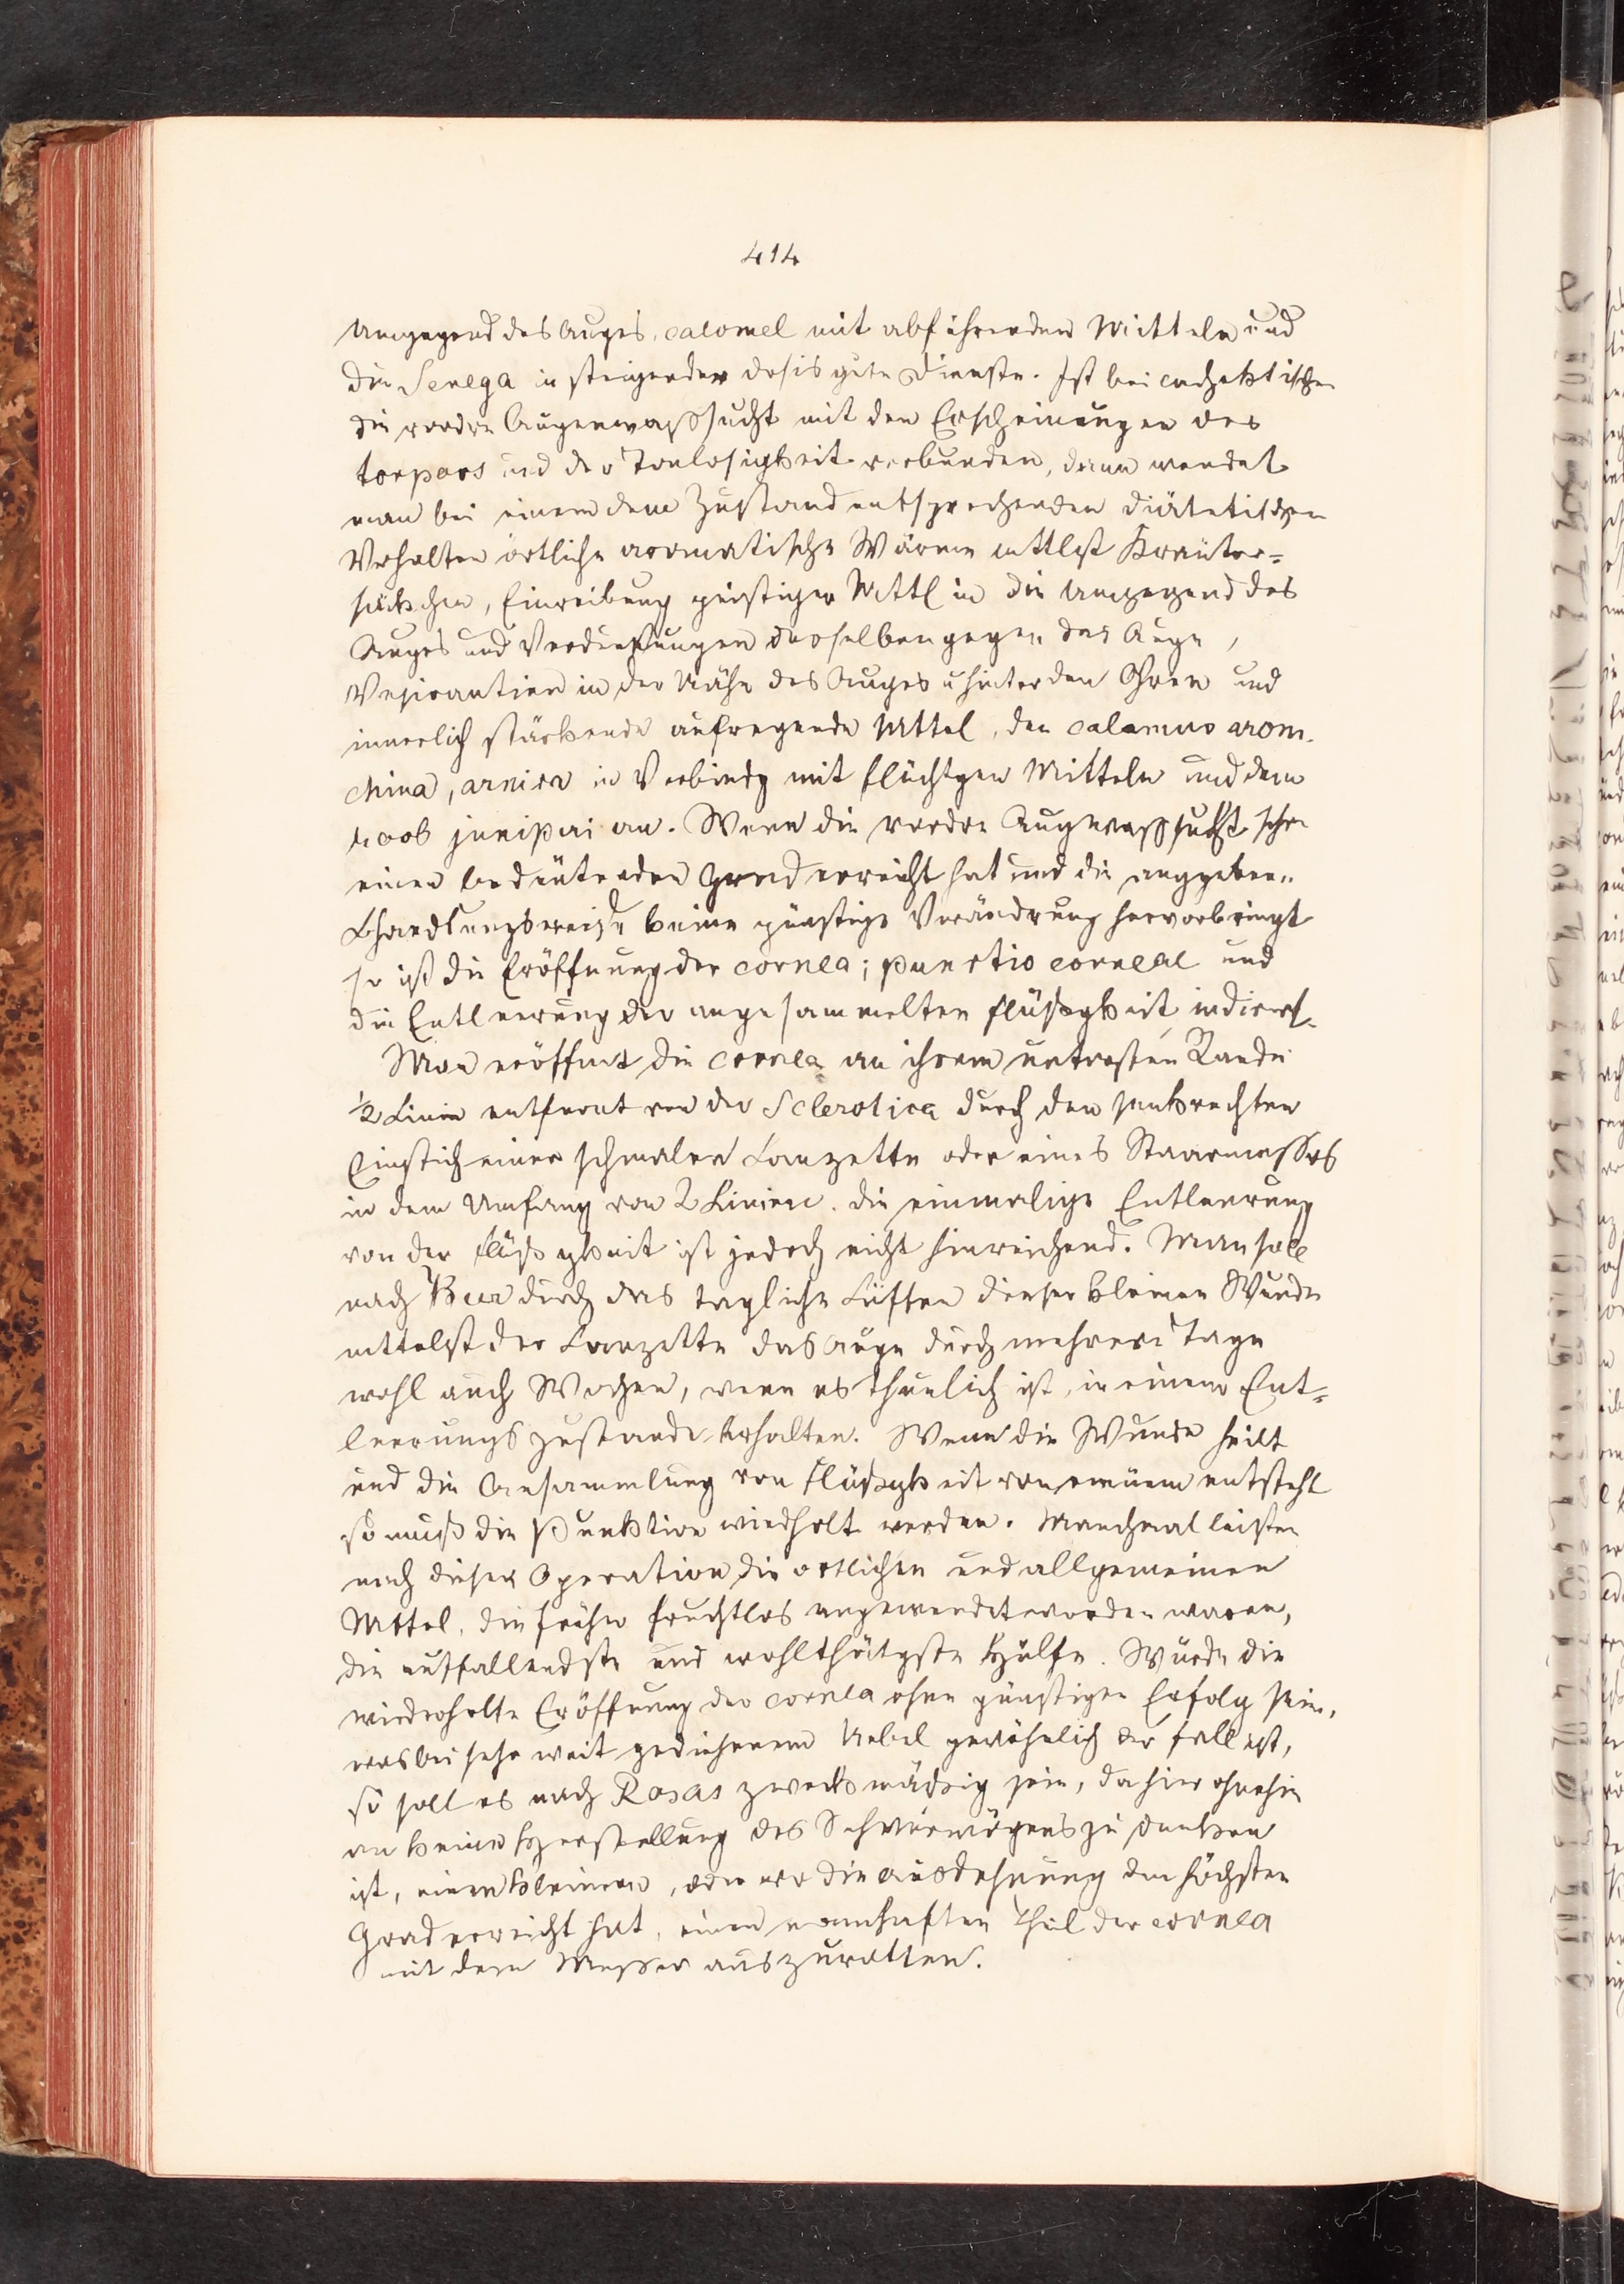 414
Umgegend des Auges, calomel mit abführenden Mitteln und
die Senega in steigender dosis gute Dienste. Ist bei cachektischen
die vordre Augenwaßsucht mit den Erscheinungen des
torpors und der Tonlosigkeit verbunden, dann wendet
man bei einem dem Zustand entsprechenden diätetischen
Verhalten örtliche aromatische Wärme mittlst Kräuter=
säckchen, Einreibung geistiger Mittl in die Umgegend des
Auges und Verdunstungen derselben gegen das Auge,
Vesicantien in der Nähe des Auges u hinter den Ohren und
innerlich stärkende aufregende Mttel, den calamus arom.
china, arnica in Verbindg mit flüchtgen Mitteln und dem
roob juniperi an. Wenn die vordre Augwaßsucht schon
einen bedeutenden Grad erreicht hat und die anggeben
Bhandlungsweise keine günstige Verändrung hervorbringt
so ist die Eröffnung der cornea; punctio corneae und
die Entleerung der angesammelten Flüßigkeit indicirt.
Man eröffnet die cornea an ihrem untersten Rande
1/2 Linie entfernt von der Sclerotica durch den senkrechten
Einstich einer schmalen Lanzette oder eines Staarmessers
in dem Umfang von 2 Linien. Die einmalige Entleerung
von der Flüßigkeit ist jedoch nicht hinreichend. Man soll
nach Beer durch das tagliche Lüften dieser kleinen Wunde
mttelst der Lanzette das Auge durch mehrere Tage
wohl auch Wochen, wenn es thunlich ist, in einem Ent=
leerungszustande erhalten. Wenn die Wunde heilt
und die Ansammlung von Flüßigkeit von neuem entsteht
so muß die Punktion wiedholt werden. Manchmal leisten
nach dieser Operation die ortlichen und allgemeinen
Mttel, die früher fruchtlos angewendet worden waren,
die auffallendste und wohlthätgste Hülfe. Würde die
wiederholte Eröffnung der cornea ohne günstigen Erfolg sein,
was bei sehr weit gediehenem Uebel gewöhnlich der Fall ist,
so soll es nach Rosas zweckmäßig sein, da hier ohnehin
an keine Herstellung des Sehvermögens zu denken
ist, einen kleinern, oder wo die Ausdehnung den höchsten
Grad erreicht hat, einen namhaften Theil der cornea
mit dem Messer auszurotten.